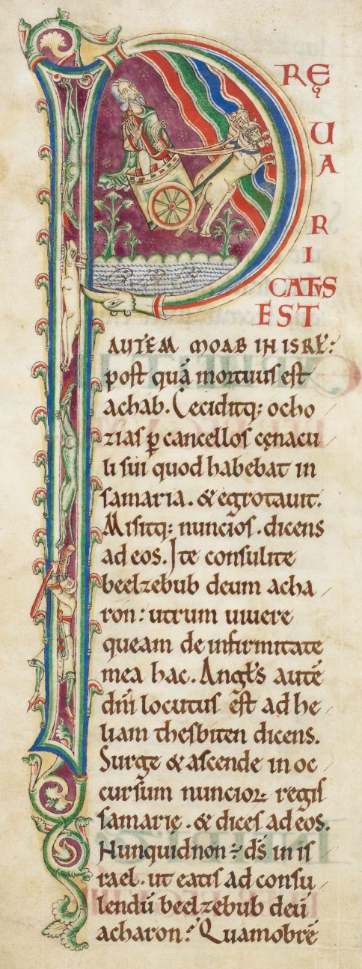 PREUARICATUS EST
AUTEM MOAB IN ISRL:
post quā mortuus est
achab. Ceciditq; ocho
zias p cancellos cęnacu
li sui quod habebat in
samaria. & egrotauit.
Misitq; nuncios. dicens
ad eos. Ite consulite
beelzebub deum acha
ron: utrum uiuere
queam de infirmitate
mea hac. Angls autē
dn̄i locutus est ad he
liam thesbiten dicens.
Surge & ascende in oc
cursum nuncioꝝ regis
samarię. & dices ad eos.
Nunquid non: ds̄ in is
rael. ut eatis ad consu
lendū beelzebub deū
acharon? Quamobrē